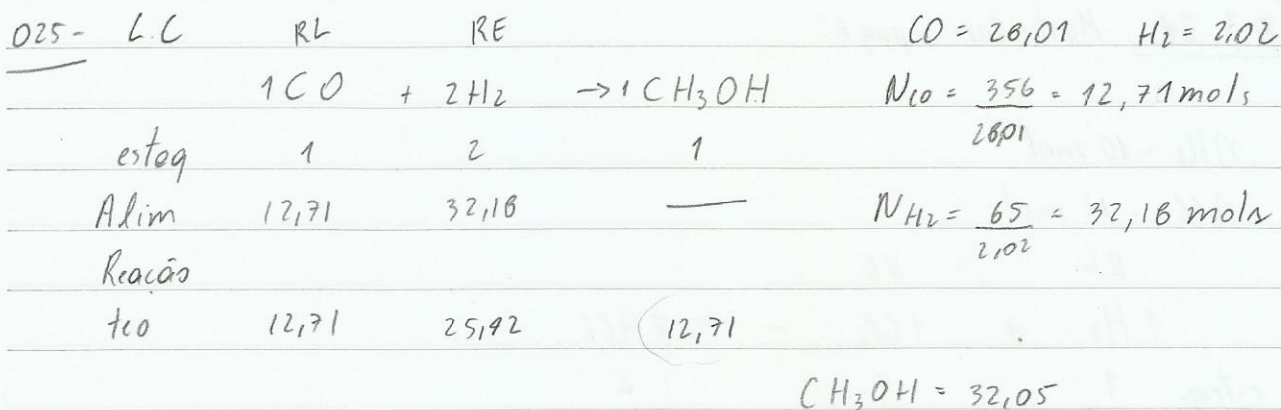 025- L.C RL RE CO = 28,01 H2 = 2,02
1CO + 2H2 → 1 CH3OH NCO = 356/28,01 = 12,71 mols
esteq 1 2 1
Alim 12,71 32,18 — NH2 = 65/2,02 = 32,18 mols
Reacão
teo 12,71 25,42 12,71
CH3OH = 32,05